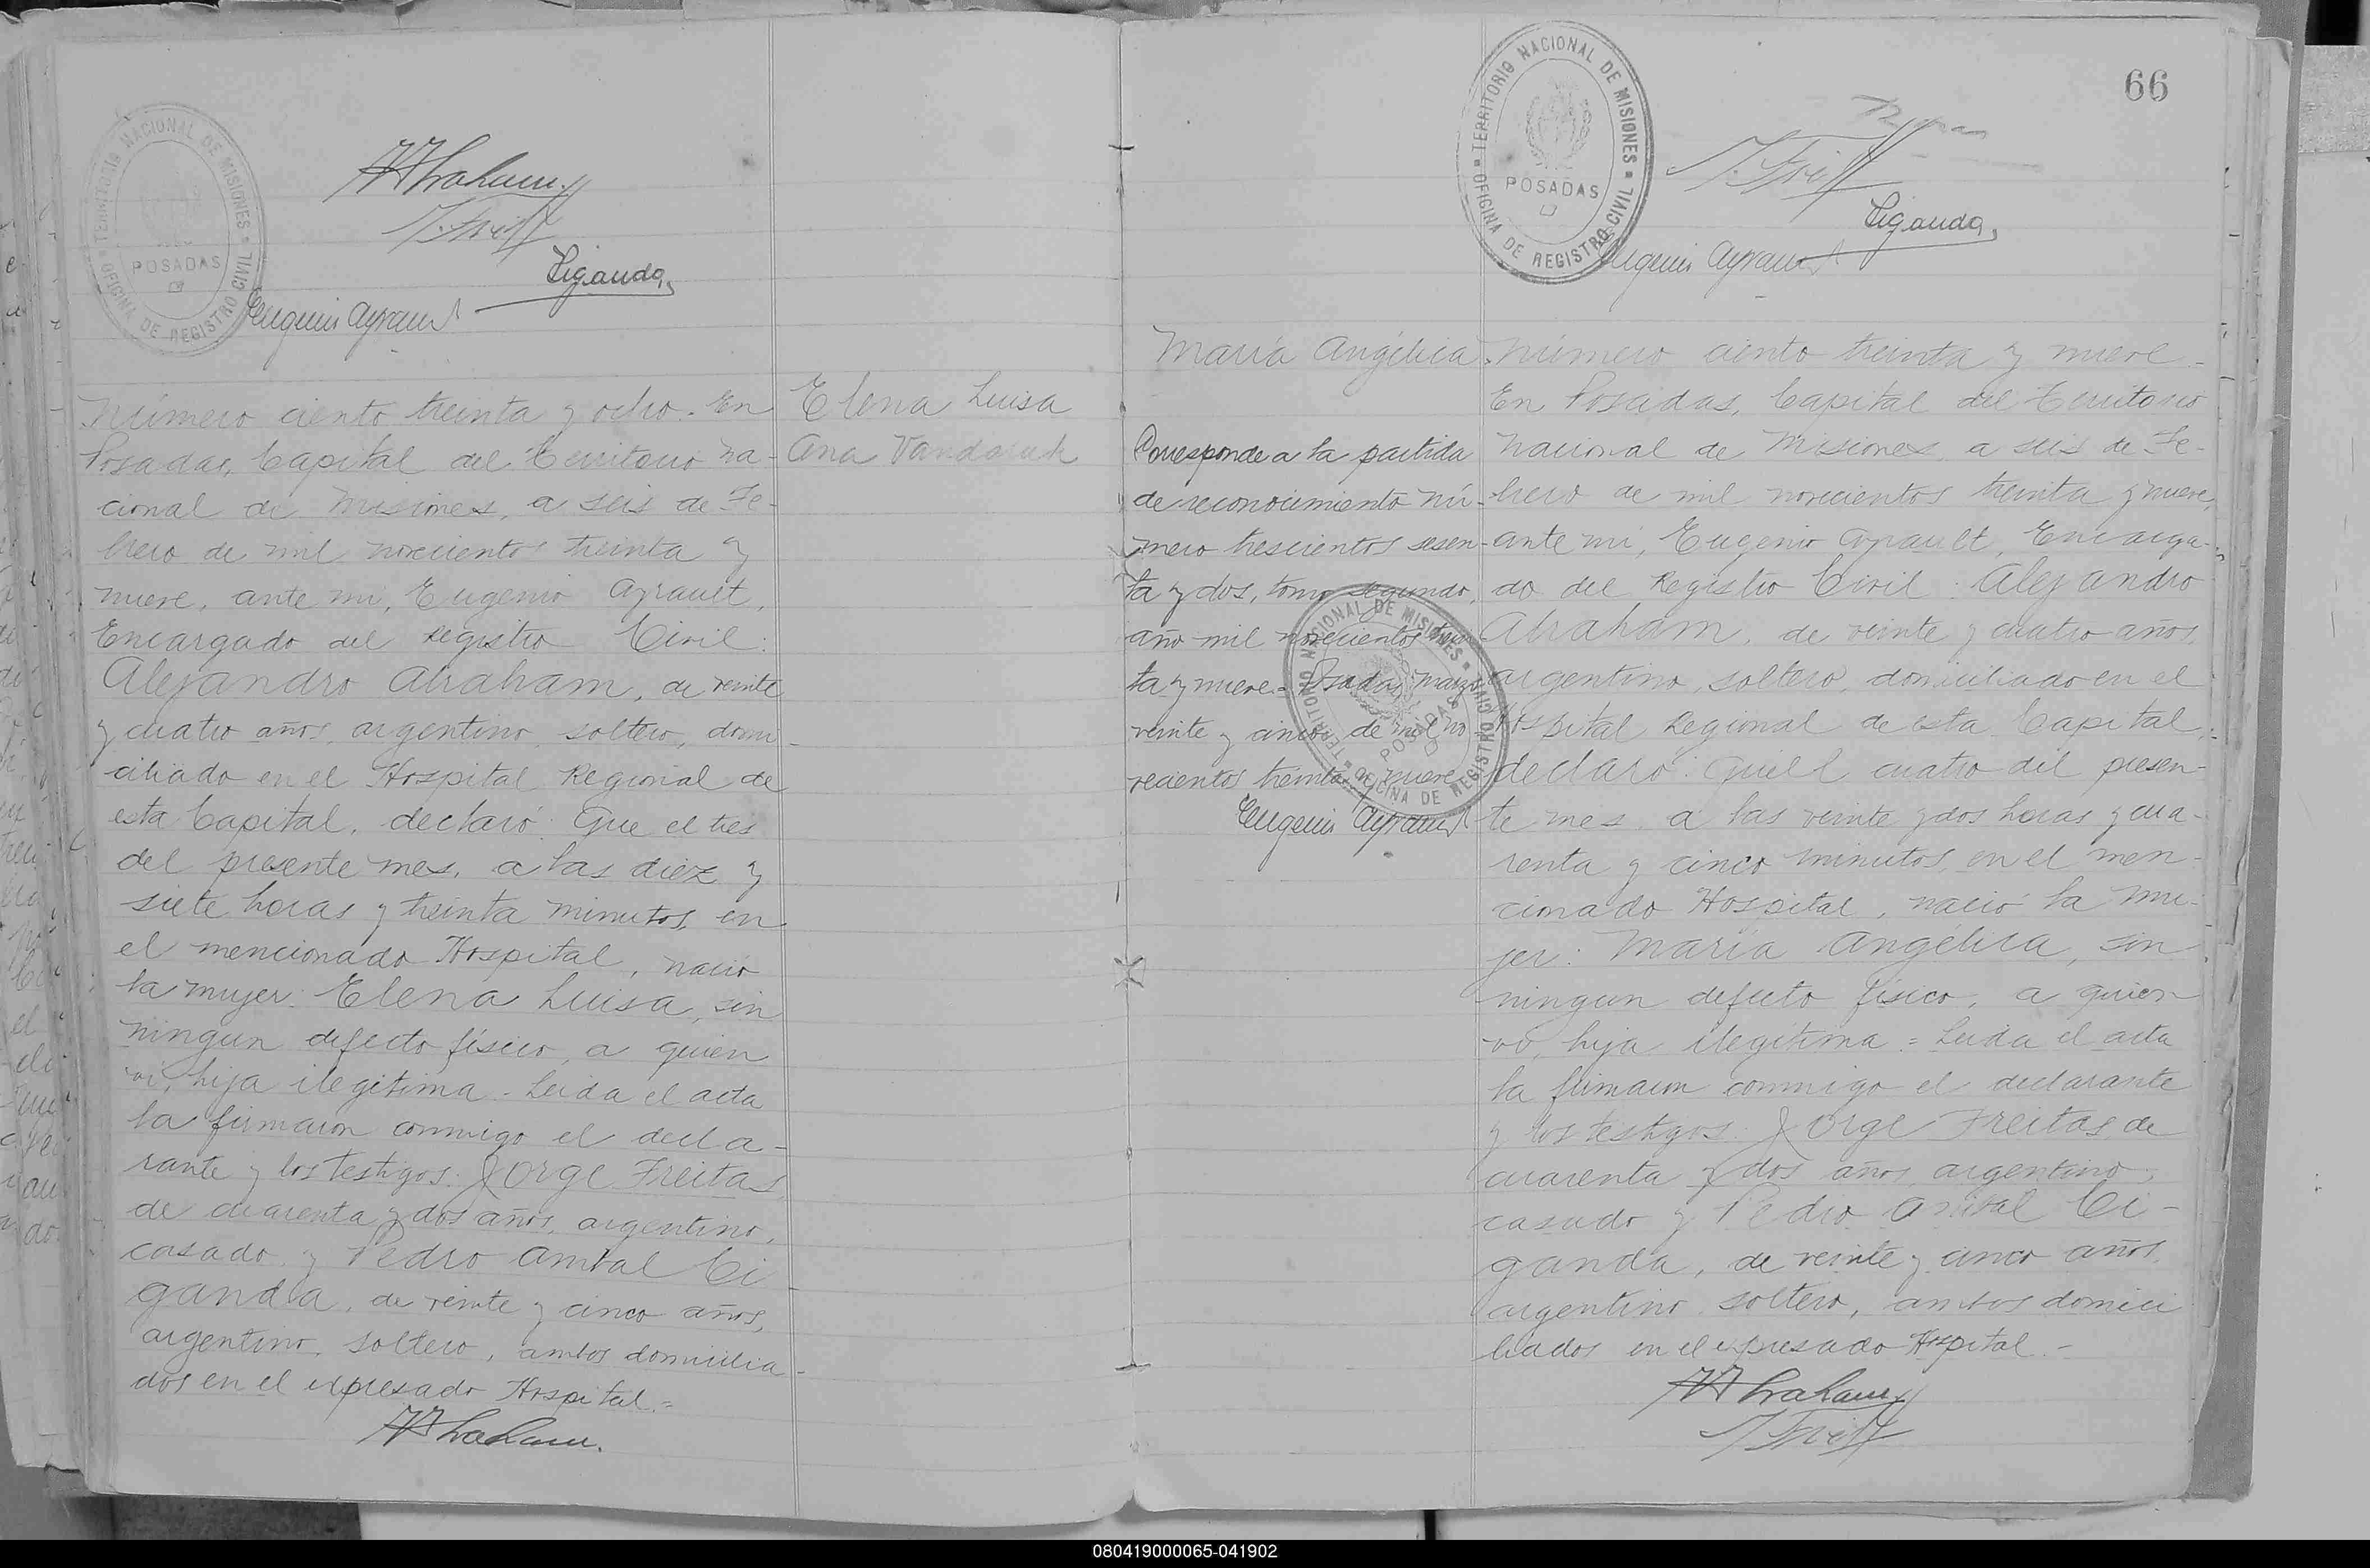 TERRITORIO NACIONAL DE MISIONES
OFICINA DE REGISTRO CIVIL
POSADAS
Eugenio Ayrault
Número ciento treinta y ocho. En
Posadas, Capital del Territorio Na-
cional de Misiones, a seis de Fe-
brero de mil novecientos treinta y
nueve, ante mi, Eugenio Ayrault,
Encargado del Registro Civil:
Alejandro Abraham, de veinte
y cuatro años, argentino, soltero, domi-
ciliado en el Hospital Regional de
esta Capital, declaró: Que el tres
del presente mes, a las diez y
siete horas y treinta minutos, en
el mencionado Hospital, nació
la mujer: Elena Luisa, sin
ningun defecto físico, a quien
ví, hija ilegítima - Leída el acta
la firmaron conmigo el decla-
rante y los testigos: Jorge Freitas,
de cuarenta y dos años, argentino,
casado y Pedro Anibal Ci-
ganda, de veinte y cinco años,
argentino, soltero, ambos domicilia-
dos en el expresado Hospital.=
Elena Luisa
Ana
66
TERRITORIO NACIONAL DE MISIONES
OFICINA DE REGISTRO CIVIL
POSADAS
Ciganda
Eugenio Ayrault
María Angélica
Corresponde a la partida
de reconocimiento nú-
mero trescientos sesen-
ta y dos, tomo segundo,
año mil novecientos trein-
ta y nueve.- Posadas, marzo
veinte y cinco de mil no-
vecientos treinta y nueve
Eugenio Ayrault
TERRITORIO NACIONAL DE MISIONES
OFICINA DE REGISTRO CIVIL
POSADAS
Número ciento treinta y nueve -
En Posadas, Capital del Territorio
Nacional de Misiones, a seis de Fe-
brero de mil novecientos treinta y nueve,
ante mi, Eugenio Ayrault, Encarga-
do del Registro Civil: Alejandro
Abraham, de veinte y cuatro años,
argentino, soltero, domiciliado en el
Hospital Regional de esta Capital,
declaró: Que el cuatro del presen-
te mes, a las veinte y dos horas y cua-
renta y cinco minutos, en el men-
cionado Hospital, nació la mu-
jer: María Angélica, sin
ningun defecto físico, a quien
ví, hija ilegítima = Leída el acta
la firmaron conmigo el declarante
y los testigos: Jorge Freitas, de
cuarenta y dos años, argentino,
casado y Pedro Anibal Ci-
ganda, de veinte y cinco años,
argentino, soltero, ambos domici
liados en el expresado Hospital.-
080419000065-041902